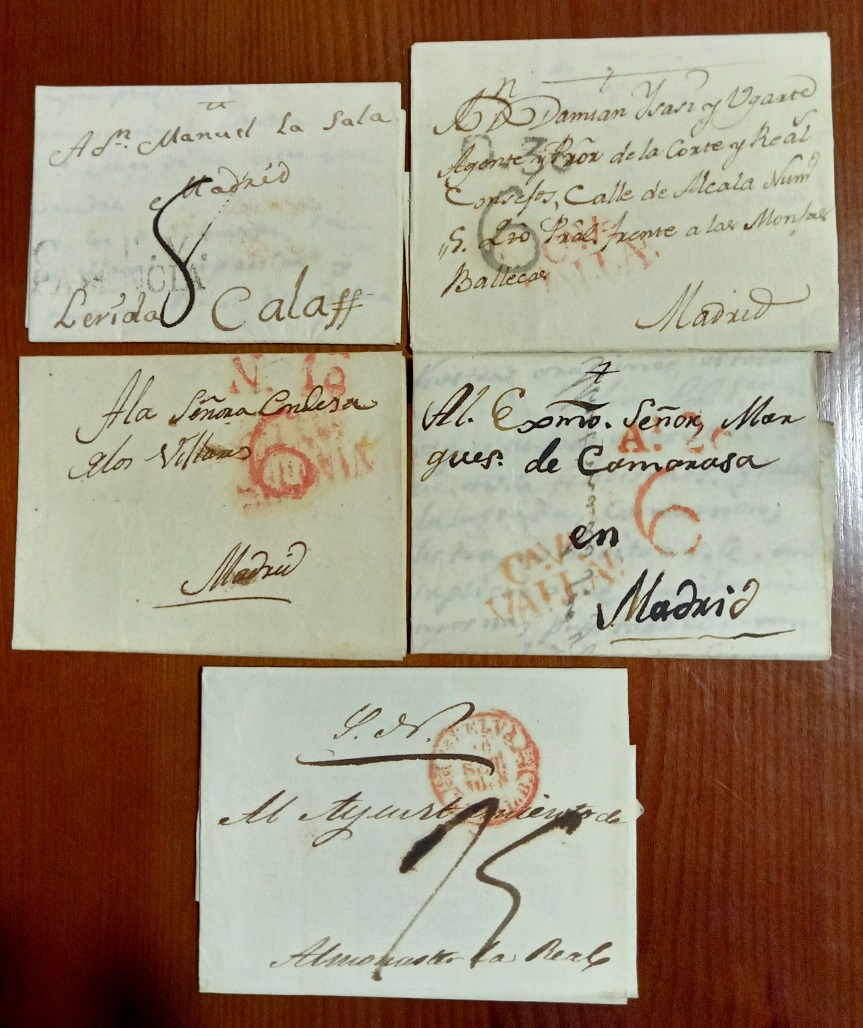 A Dn. Manuel La Sala
Madrid
8
PALENCIA
Lerida Calaff
A Dn Damian Ysasi y Ugarte
Agente y Pror de la Corte y Real
Consejos, Calle de Alcala Num
5. Qto Pral. frente a las Monjas
Ballecas
6
VALLA.
Madrid
N. 18
A la Señora Condesa
de los Villares
6
Madrid
Al. Exmo. Señor, Mar
ques. de Camarasa
A. 26
6
en
CA.V.
VALLAD
Madrid
S. N.
HUELVA
Al Ayuntamiento de
75
Almonaster la Real